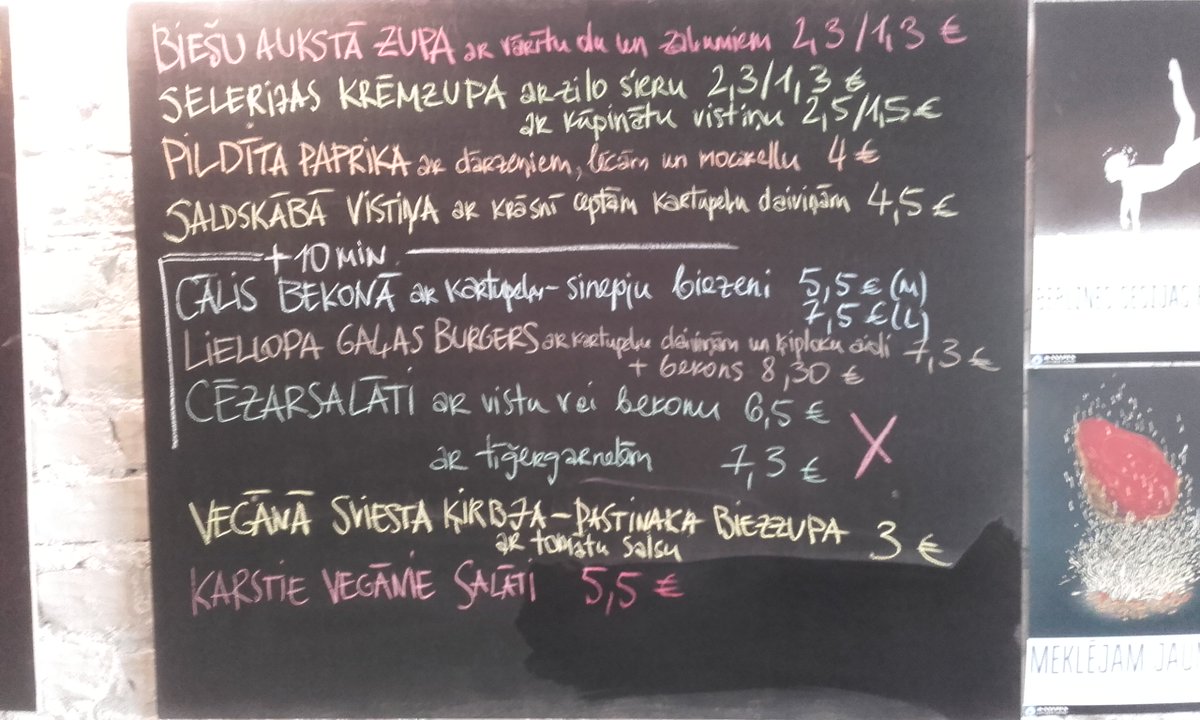 BIEŠU AUKSTĀ ZUPA ar vārītu olu un zaļumiem 2,3/1,3 €
SELERIJAS KRĒMZUPA ar zilo sieru 2,3/1,3 €
ar kūpinātu vistiņu 2,5/1,5 €
PILDĪTA PAPRIKA ar dārzeņiem, lēcām un mocarellu 4 €
SALDSKĀBĀ VISTIŅA ar krāsnī ceptām kartupeļu daiviņām 4,5 €
+10 MIN.
CĀLIS BEKONĀ ar kartupeļu-sinepju biezeni 5,5 € (M)
7,5 € (L)
LIELLOPA GAĻAS BURGERS ar kartupeļu daiviņām un ķiploku aioli 7,3 €
+ bekons 8,30 €
CĒZARSALĀTI ar vistu vai bekonu 6,5 €
X
ar tīģergarnelēm 7,3 €
VEGĀNĀ SVIESTA ĶIRBJA-PASTINAKA BIEZZUPA 3 €
ar tomātu salsu
KARSTIE VEGĀNIE SALĀTI 5,5 €
MEKLĒJAM JAU